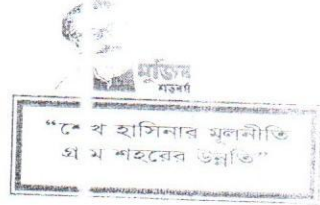 মুজিব
শতবর্ষ
“শেখ হাসিনার মূলনীতি
গ্রাম শহরের উন্নতি”